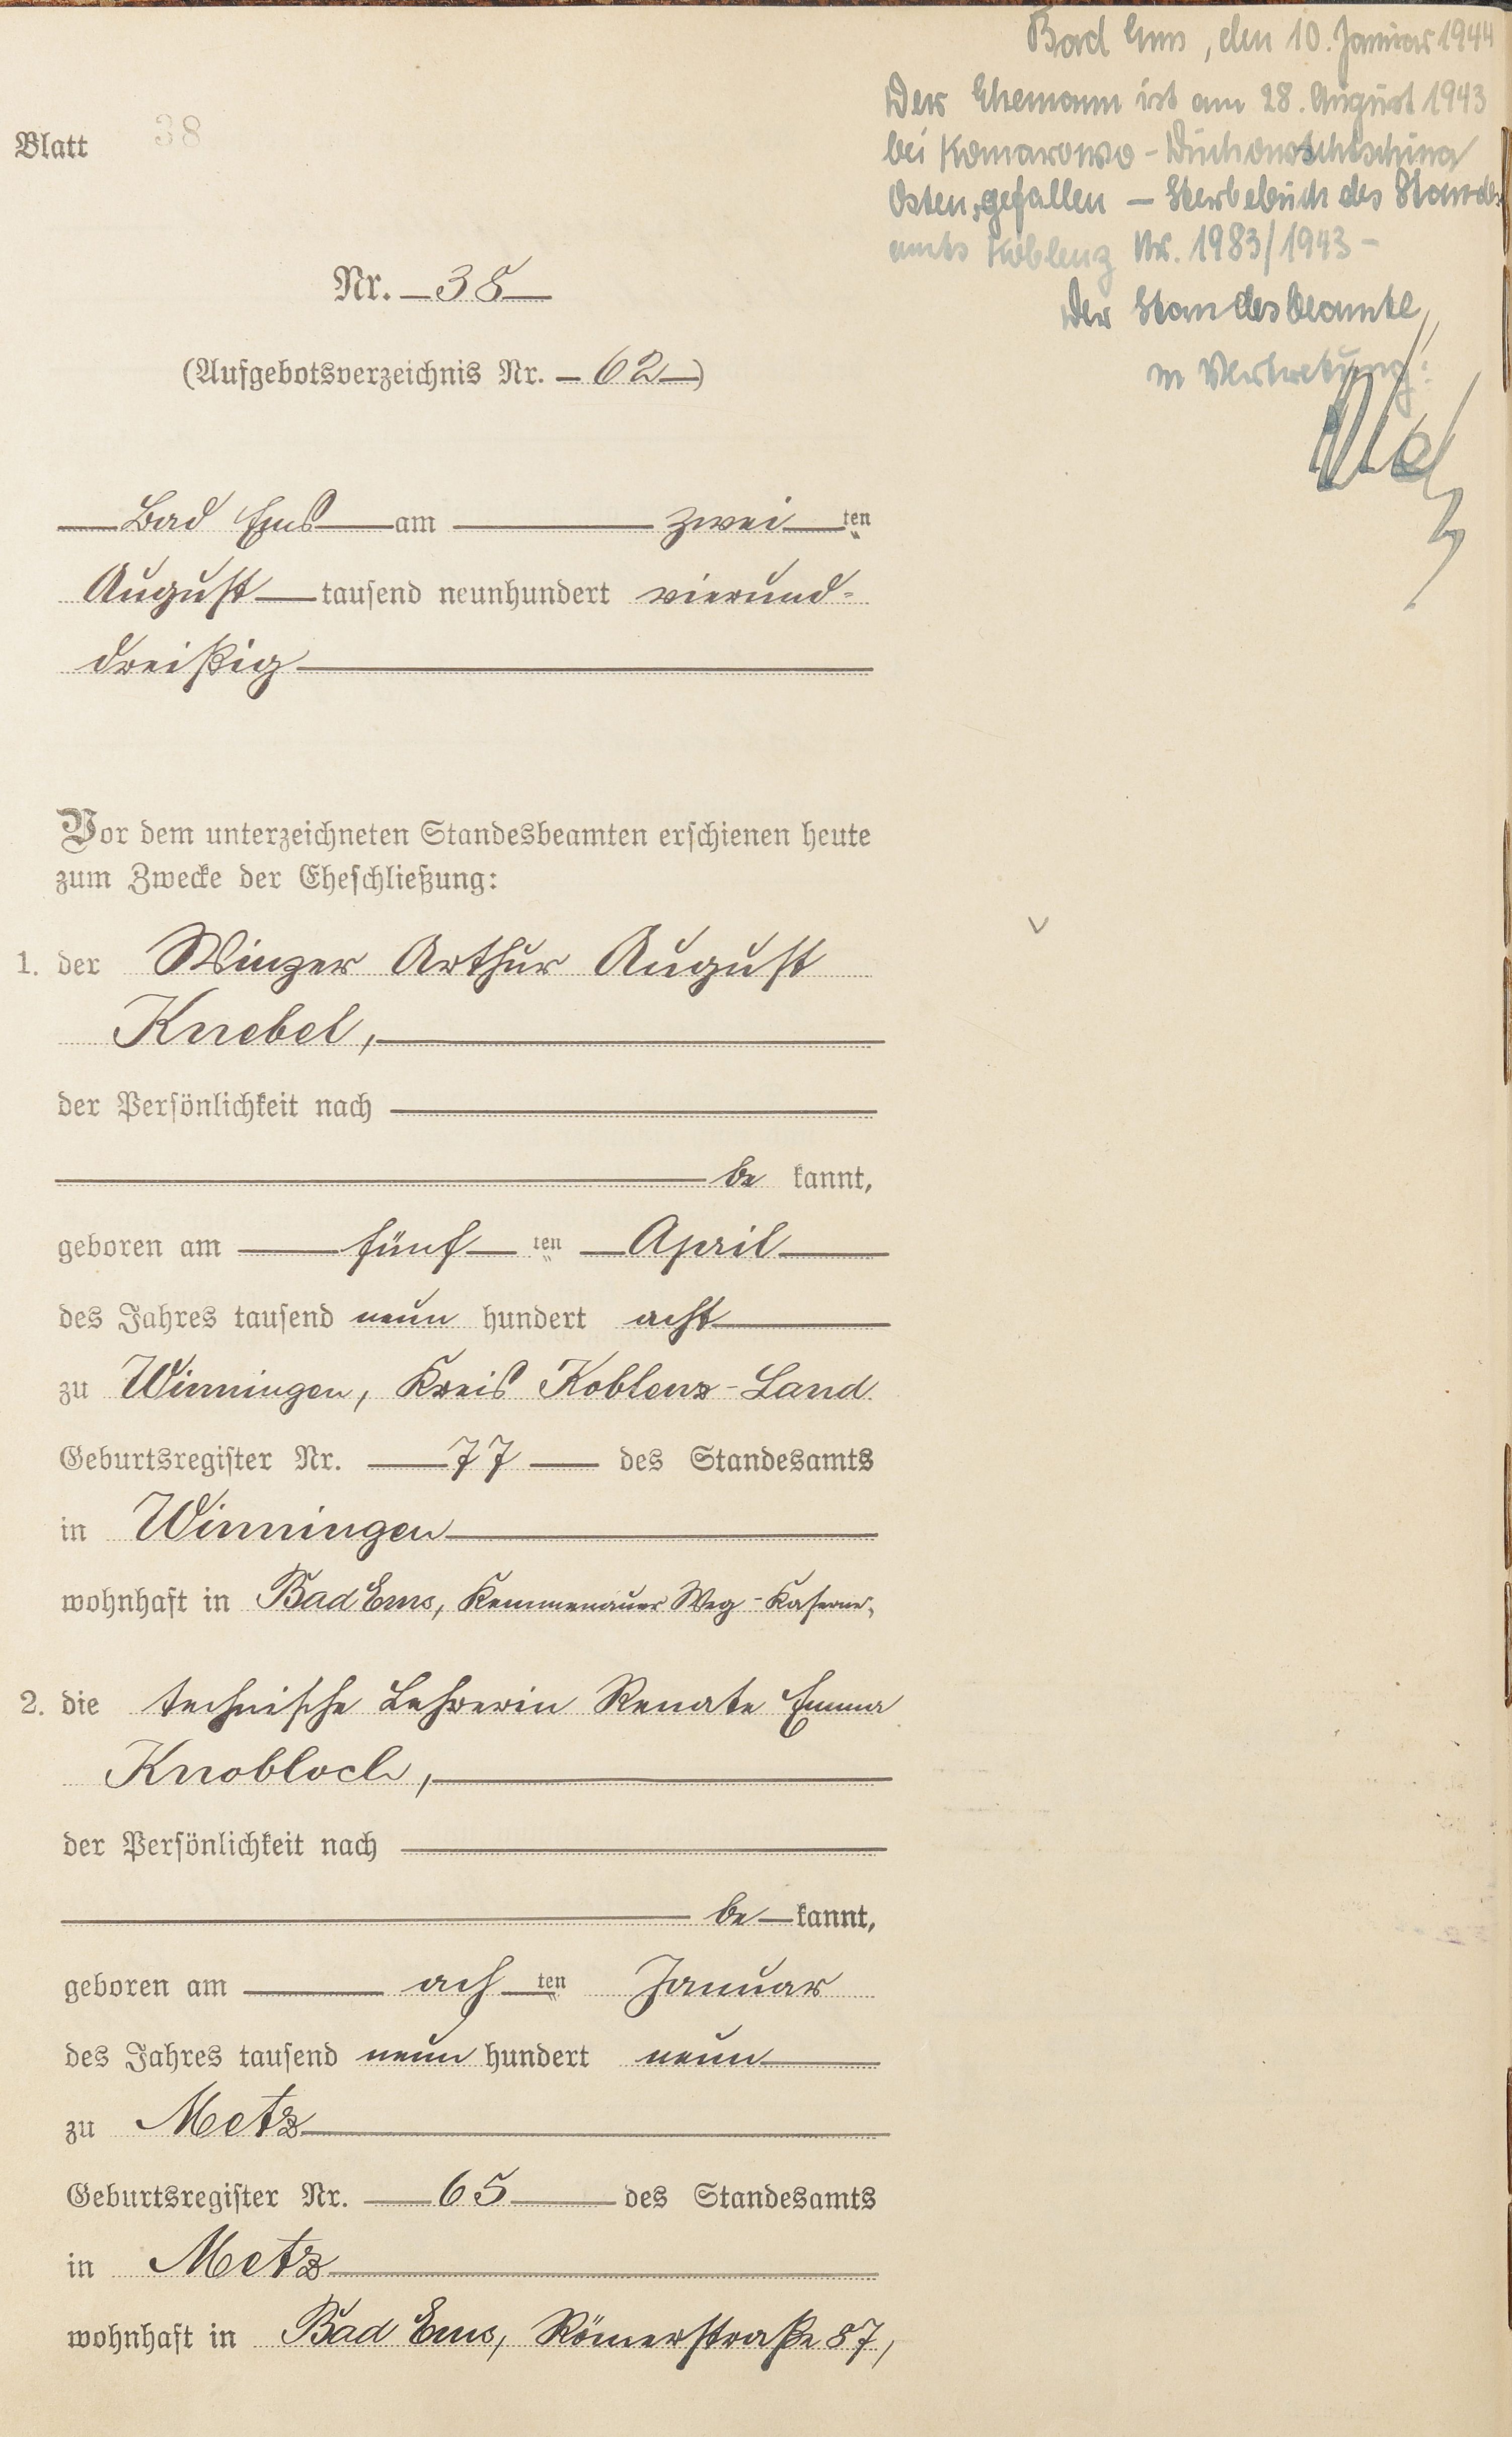 Bad Ems, den 10. Januar 1944
Der Ehemann ist am 28. August 1943
bei Komarowo - Duchowschtschina
Osten, gefallen — Sterbebuch des Standes
amts Koblenz Nr. 1983/1943 -
Der Standesbeamte
in Vertretung:
Blatt 38
Nr. 38
(Aufgebotsverzeichnis Nr. 62)
Bad Ems am zwei ten
August tausend neunhundert vierund=
dreißig
Vor dem unterzeichneten Standesbeamten erschienen heute
zum Zwecke der Eheschließung:
1. der Winzer Arthur August
Knebel,
der Persönlichkeit nach
be kannt,
geboren am fünf ten April
des Jahres tausend neun hundert acht
zu Winningen, Kreis Koblenz-Land
Geburtsregister Nr. 77 des Standesamts
in Winningen
wohnhaft in Bad Ems, Kemmenauer Weg - Kaserne,
2. die technische Lehrerin Renate Emma
Knobloch,
der Persönlichkeit nach
be kannt,
geboren am ach ten Januar
des Jahres tausend neun hundert neun
zu Metz
Geburtsregister Nr. 65 des Standesamts
in Metz
wohnhaft in Bad Ems, Römerstraße 87,